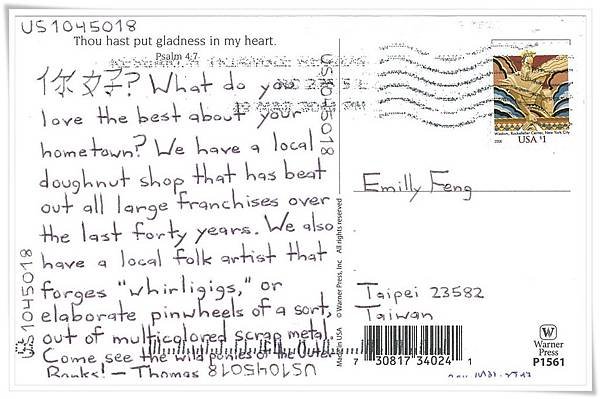 US1045018
Thou hast put gladness in my heart.
Psalm 4:7
你好? What do you
love the best about your
hometown? We have a local
doughnut shop that has beat
out all large franchises over
the last forty years. We also
have a local folk artist that
forges "whirligigs," or
elaborate pinwheels of a sort,
out of multicolored scrap metal.
Come see the wild ponies of the Outer
Banks! — Thomas
US1045018
US1045018
US1045018
© Warner Press, Inc All rights reserved
Made in USA
Wisdom, Rockefeller Center, New York City
USA $1
Emilly Feng
Taipei 23582
Taiwan
7 30817 34024 1
W
Warner
Press
P1561